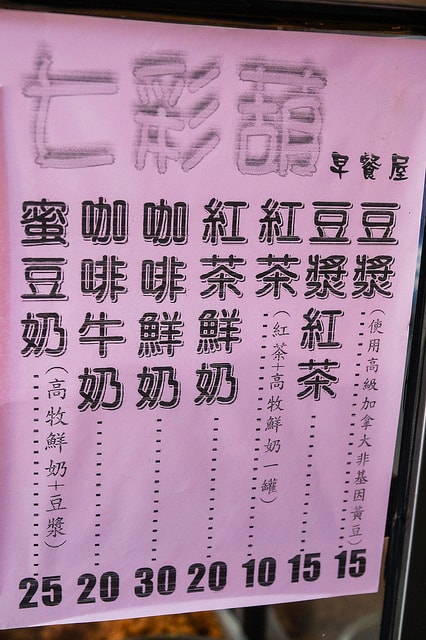 七彩
早餐屋
豆漿(使用高級加拿大非基因黃豆)15
豆漿紅茶15
紅茶(紅茶+高牧鮮奶一罐)10
紅茶鮮奶20
咖啡鮮奶30
咖啡牛奶20
蜜豆奶(高牧鮮奶+豆漿)25